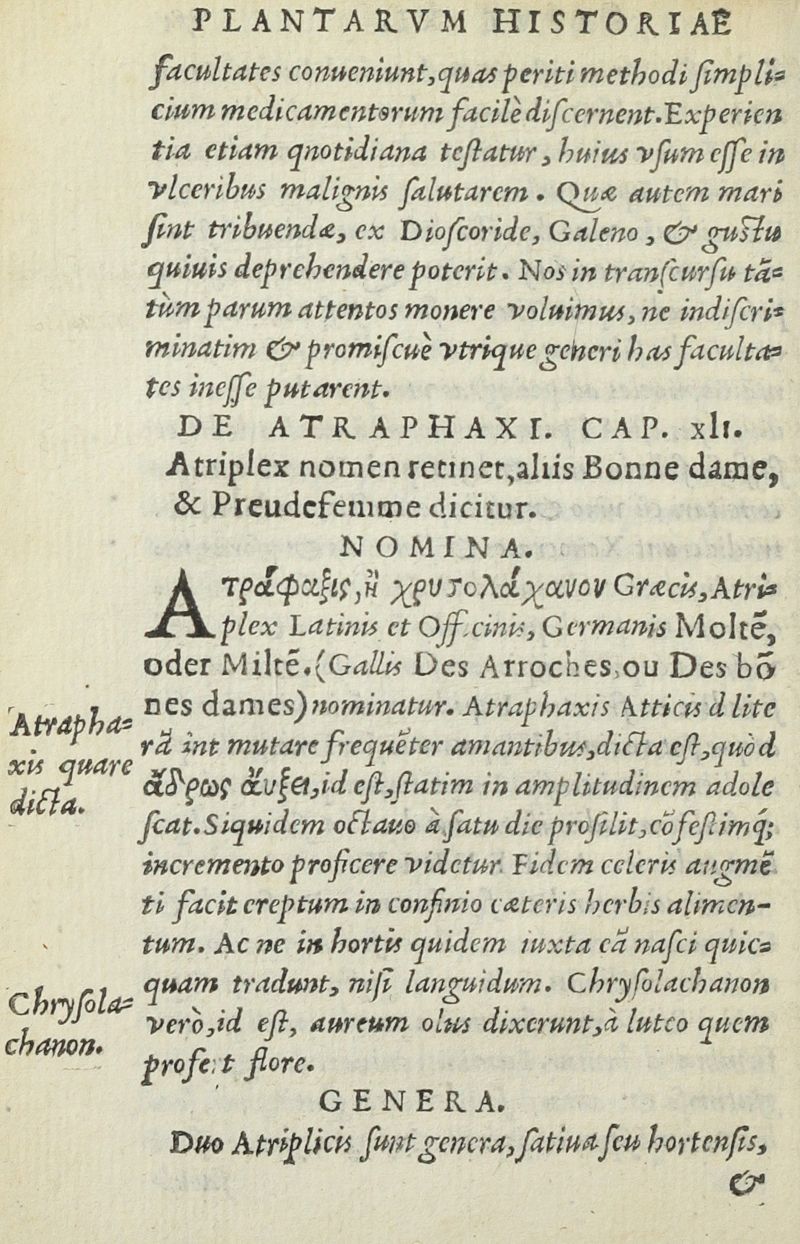 PLANTARVM HISTORIAE
facultates conueniunt, quas periti methodi simpli=
cium medicamentorum facilè discernent. Experien
tia etiam qnotidiana testatur, huius vsum esse in
vlceribus malignis salutarem. Quæ autem mari
sint tribuendæ, ex Dioscoride, Galeno, & gustu
quiuis deprehendere poterit. Nos in transcursu tā=
tùm parum attentos monere voluimus, ne indiscri=
minatim & promiscuè vtrique generi has faculta=
tes inesse putarent.
DE ATRAPHAXI. CAP. xli.
Atriplex nomen retinet, aliis Bonne dame,
& Preudefemme dicitur.
NOMINA.
Ατράφαξις, ἢ χρυσολάχανον Græcis, Atri=
plex Latinis et Officinis, Germanis Moltē,
oder Miltē. (Gallis Des Arroches, ou Des bō
nes dames) nominatur. Atraphaxis Atticis d lite
rā int mutare frequēter amantibus, dicta est, quòd
ἅδρως ἄυξει, id est, statim in amplitudinem adole
scat. Siquidem octauo à satu die prosilit, cōfestimq́;
incremento proficere videtur. Fidem celeris augmē
ti facit ereptum in confinio cæteris herbis alimen-
tum. Ac ne in hortis quidem iuxta eā nasci quic=
quam tradunt, nisi languidum. Chrysolachanon
verò, id est, aureum olus dixerunt, à luteo quem
profert flore.
Atrapha=
xis quare
dicta.
Chrysola=
chanon.
GENERA.
Duo Atriplicis sunt genera, satiua seu hortensis,
&